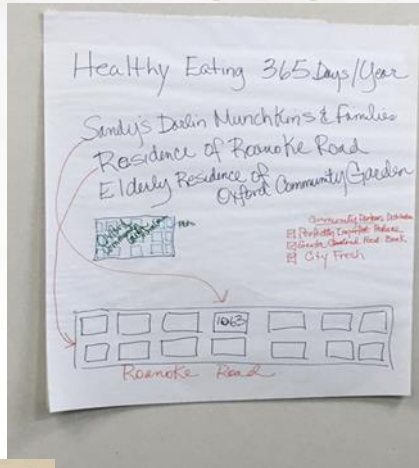 Healthy Eating 365 Days/Year
Sandy's Darlin Munchkins & Families
Residence of Roanoke Road
Elderly Residence of
Oxford Community Garden
Oxford
Community
Garden
Community Partners
Perfectly Imperfect Produce
Greater Cleveland Food Bank
City Fresh
1063
Roanoke Road